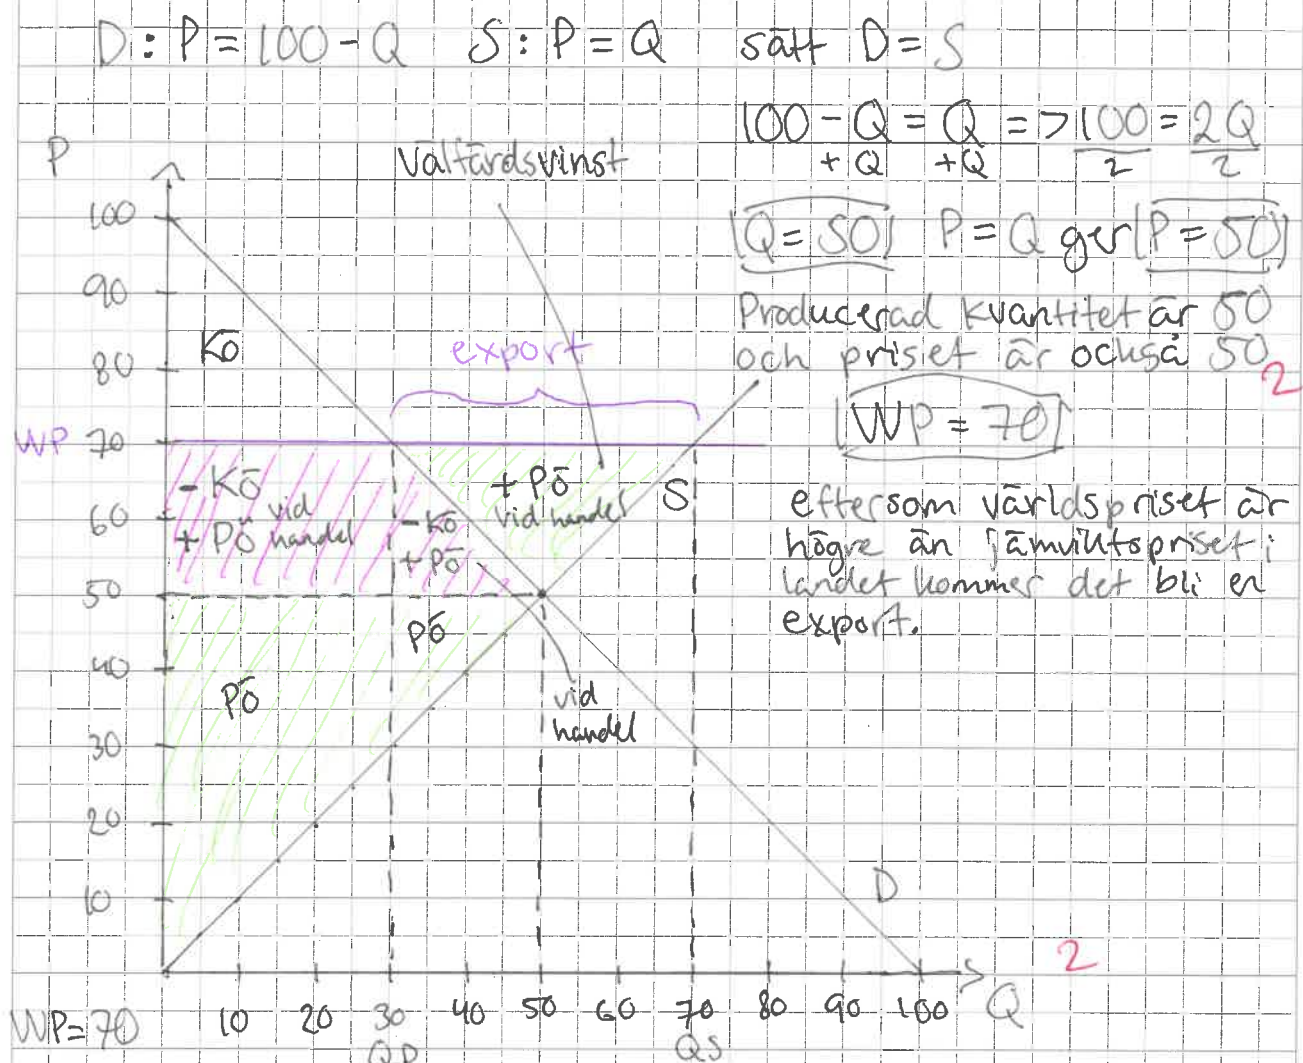 D: P = 100 - Q S: P = Q sätt D = S
100 - Q = Q => 100 = 2Q
+ Q +Q 2 2
Q = 50 P = Q ger P = 50
Producerad kvantitet är 50
och priset är också 50
2
WP = 70
eftersom världspriset är
högre än jämviktspriset i
landet kommer det bli en
export.
P
Välfärdsvinst
100
90
KÖ
export
80
WP 70
- KÖ vid
+ PÖ handel
+ PÖ
vid handel
S
60
- KÖ
+ PÖ
50
PÖ
40
PÖ
vid
handel
30
20
10
D
2
10 20 30 40 50 60 70 80 90 100 Q
WP=70
QD QS